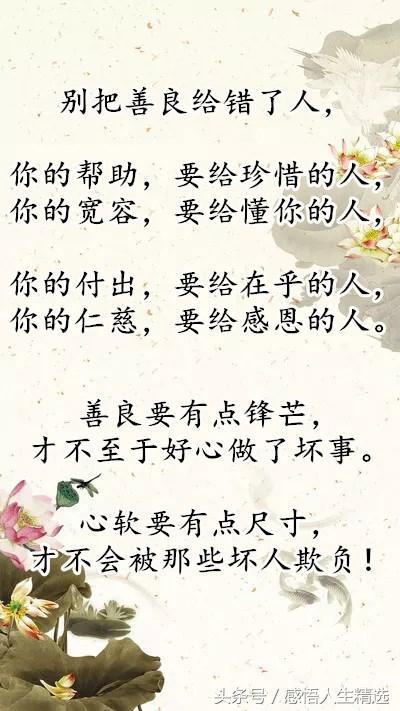 别把善良给错了人，
你的帮助，要给珍惜的人，
你的宽容，要给懂你的人，
你的付出，要给在乎的人，
你的仁慈，要给感恩的人。
善良要有点锋芒，
才不至于好心做了坏事。
心软要有点尺寸，
才不会被那些坏人欺负！
头条号/感悟人生精选